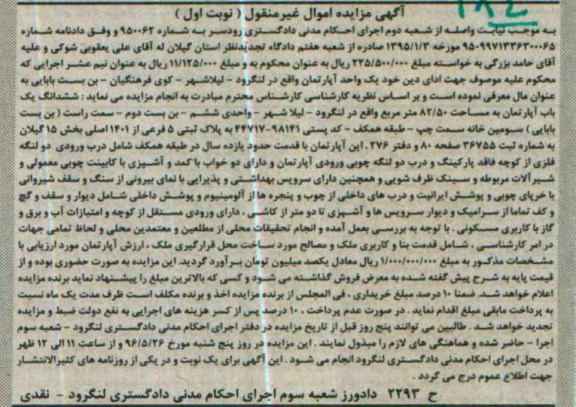 ۱۸۴
آگهی مزایده اموال غیرمنقول ( نوبت اول )
به موجب نیابت واصله از شعبه دوم اجرای احکام مدنی دادگستری رودسر به شماره ۹۵۰۰۶۲ و وفق دادنامه شماره
۹۵۰۹۹۷۱۳۳۶۳۰۰۰۶۵ مورخه ۱۳۹۵/۱/۳ صادره از شعبه هفتم دادگاه تجدیدنظر استان گیلان له آقای علی یعقوبی شوکی و علیه
آقای حامد بزرگی به خواسته مبلغ ۲۲۵/۵۰۰/۰۰۰ ریال به عنوان محکوم به و مبلغ ۱۱/۱۲۵/۰۰۰ ریال به عنوان نیم عشر اجرایی که
محکوم علیه موصوف جهت ادای دین خود یک واحد آپارتمان واقع در لنگرود - لیلاشهر - کوی فرهنگیان - بن بست بابایی به
عنوان مال معرفی نموده است و بر اساس نظریه کارشناسی کارشناس محترم مبادرت به انجام مزایده می نماید : ششدانگ یک
باب آپارتمان به مساحت ۸۲/۵۰ متر مربع واقع در لنگرود - لیلا شهر - واحدی ششم - بن بست دوم - سمت راست ( بن بست
بابایی ) سومین خانه سمت چپ - طبقه همکف - کد پستی ۹۸۱۴۱-۴۴۷۱۷ به پلاک ثبتی ۵ فرعی از ۱۴۰۱ اصلی بخش ۱۵ گیلان
به شماره ثبت ۳۶۷۵۵ صفحه ۸۰ و دفتر ۲۷۶ . این آپارتمان با قدمت حدود یازده سال در طبقه همکف شامل درب ورودی دو لنگه
فلزی از کوچه فاقد پارکینگ و درب دو لنگه چوبی ورودی آپارتمان و دارای دو خواب با کمد و آشپزی با کابینت چوبی معمولی و
شیرآلات مربوطه و سینک ظرف شویی و همچنین دارای سرویس بهداشتی و پذیرایی با نمای بیرونی از سنگ و سقف شیروانی
با خرپای چوبی و پوشش ایرانیت و درب های داخلی از چوب و پنجره ها از آلومینیوم و پوشش داخلی شامل دیوار و سقف و گچ
و کف تماما از سرامیک و دیوار سرویس ها و آشپزی تا دو متر از کاشی . دارای ورودی مستقل از کوچه و امتیازات آب و برق و
گاز با کاربری مسکونی . با توجه به بررسی بعمل آمده و انجام تحقیقات محلی از مطلعین و معتمدین محلی و لحاظ تمامی جهات
در امر کارشناسی . شامل قدمت بنا و کاربری ملک و مصالح مورد ساخت محل قرارگیری ملک . ارزش آپارتمان مورد ارزیابی با
مشخصات مذکور به مبلغ ۱/۰۰۰/۰۰۰/۰۰۰ ریال معادل یکصد میلیون تومان برآورد گردید. این مزایده به صورت حضوری بوده و از
قیمت پایه به شرح پیش گفته شده به معرض فروش گذاشته می شود و کسی که بالاترین مبلغ را پیشنهاد نماید برنده مزایده
اعلام خواهد شد. ضمنا ۱۰ درصد مبلغ خریداری . فی المجلس از برنده مزایده اخذ و برنده مکلف است ظرف مدت یک ماه نسبت
به پرداخت مابقی مبلغ اقدام نماید . در صورت عدم پرداخت . ۱۰ درصد پس از کسر هزینه های اجرایی به نفع دولت ضبط و مزایده
تجدید خواهد شد . طالبین می توانند پنج روز قبل از تاریخ مزایده در دفتر اجرای احکام مدنی دادگستری لنگرود - شعبه سوم
اجرا - حاضر شده و هماهنگی های لازم را مبذول نمایند . این مزایده در روز پنج شنبه مورخ ۹۶/۵/۲۶ و از ساعت ۱۱ الی ۱۲ ظهر
در محل اجرای احکام مدنی دادگستری لنگرود انجام می شود . این آگهی برای یک نوبت و در یکی از روزنامه های کثیرالانتشار
جهت اطلاع عموم درج می گردد .
ح ۲۲۹۳ دادورز شعبه سوم اجرای احکام مدنی دادگستری لنگرود - نقدی